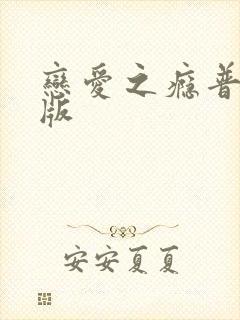 戀愛之癮普
版
安安夏夏